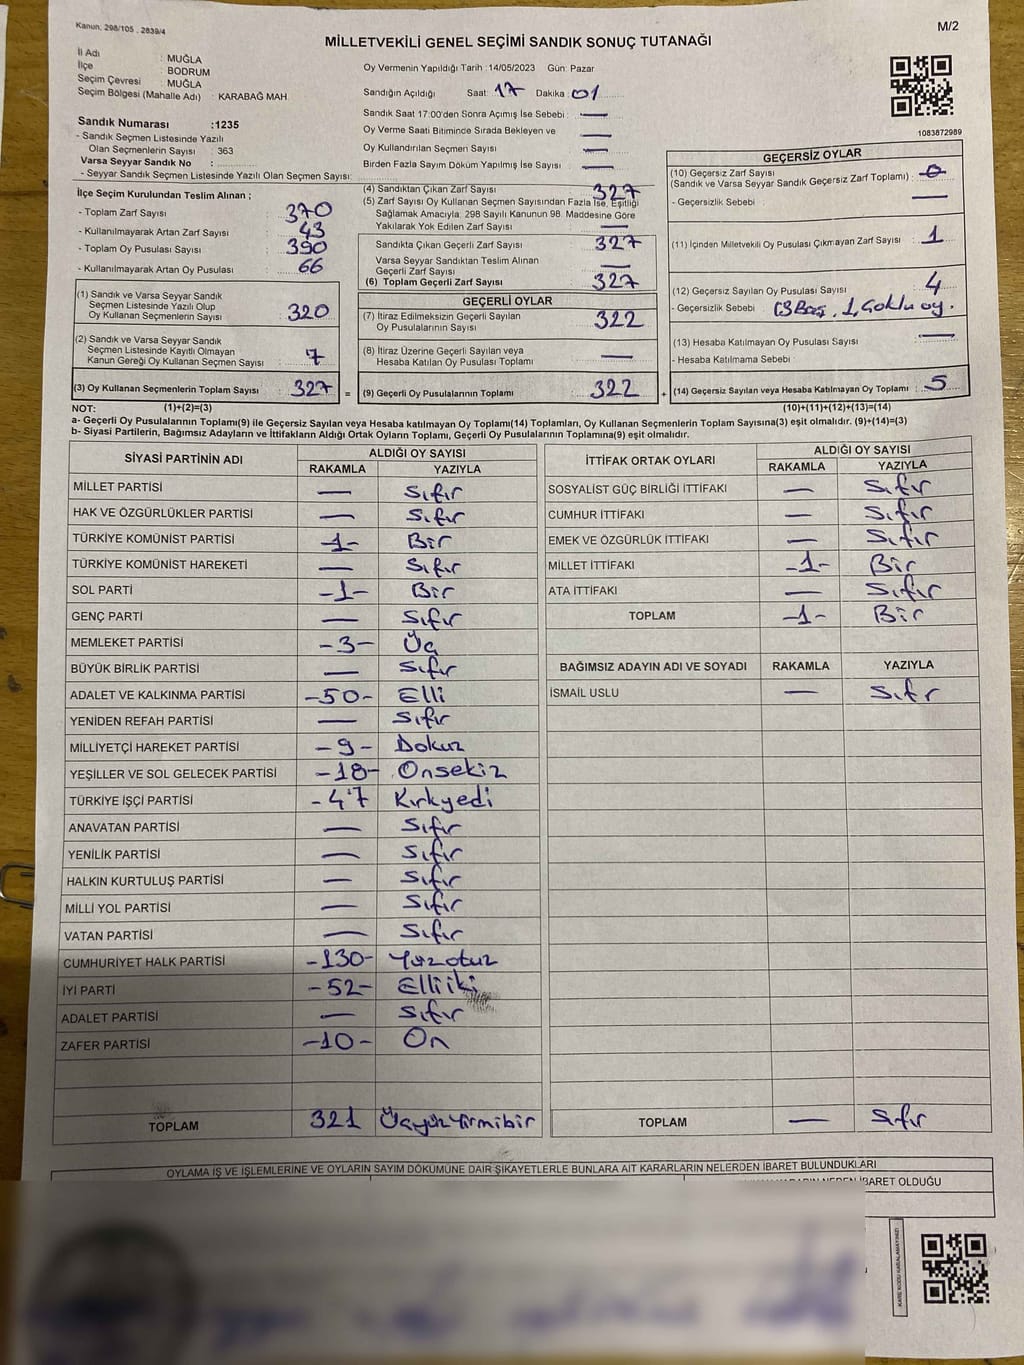 Kanun: 298/105 , 2839/4
M/2
MİLLETVEKİLİ GENEL SEÇİMİ SANDIK SONUÇ TUTANAĞI
İl Adı : MUĞLA
İlçe : BODRUM
Seçim Çevresi : MUĞLA
Seçim Bölgesi (Mahalle Adı) : KARABAĞ MAH.
Oy Vermenin Yapıldığı Tarih :14/05/2023 Gün: Pazar
Sandığın Açıldığı Saat: 17 Dakika: 01
Sandık Saat 17:00'den Sonra Açılmış İse Sebebi : —
Oy Verme Saati Bitiminde Sırada Bekleyen ve —
Oy Kullandırılan Seçmen Sayısı : —
Birden Fazla Sayım Döküm Yapılmış İse Sayısı : —
1083872989
Sandık Numarası :1235
- Sandık Seçmen Listesinde Yazılı
Olan Seçmenlerin Sayısı : 363
Varsa Seyyar Sandık No :
- Seyyar Sandık Seçmen Listesinde Yazılı Olan Seçmen Sayısı:
İlçe Seçim Kurulundan Teslim Alınan ;
- Toplam Zarf Sayısı : 370
- Kullanılmayarak Artan Zarf Sayısı : 43
- Toplam Oy Pusulası Sayısı : 390
- Kullanılmayarak Artan Oy Pusulası : 66
(1) Sandık ve Varsa Seyyar Sandık
Seçmen Listesinde Yazılı Olup
Oy Kullanan Seçmenlerin Sayısı : 320
(2) Sandık ve Varsa Seyyar Sandık
Seçmen Listesinde Kayıtlı Olmayan
Kanun Gereği Oy Kullanan Seçmen Sayısı : 7
(3) Oy Kullanan Seçmenlerin Toplam Sayısı : 327
(4) Sandıktan Çıkan Zarf Sayısı : 327
(5) Zarf Sayısı Oy Kullanan Seçmen Sayısından Fazla İse, Eşitliği
Sağlamak Amacıyla: 298 Sayılı Kanunun 98. Maddesine Göre
Yakılarak Yok Edilen Zarf Sayısı : —
Sandıkta Çıkan Geçerli Zarf Sayısı : 327
Varsa Seyyar Sandıktan Teslim Alınan
Geçerli Zarf Sayısı : —
(6) Toplam Geçerli Zarf Sayısı : 327
GEÇERLİ OYLAR
(7) İtiraz Edilmeksizin Geçerli Sayılan
Oy Pusulalarının Sayısı : 322
(8) İtiraz Üzerine Geçerli Sayılan veya
Hesaba Katılan Oy Pusulası Toplamı : —
= (9) Geçerli Oy Pusulalarının Toplamı : 322
GEÇERSİZ OYLAR
(10) Geçersiz Zarf Sayısı : 0
(Sandık ve Varsa Seyyar Sandık Geçersiz Zarf Toplamı)
- Geçersizlik Sebebi : —
(11) İçinden Milletvekili Oy Pusulası Çıkmayan Zarf Sayısı : 1
(12) Geçersiz Sayılan Oy Pusulası Sayısı : 4
- Geçersizlik Sebebi : (3 Boş, 1 Çoklu oy.
(13) Hesaba Katılmayan Oy Pusulası Sayısı : —
- Hesaba Katılmama Sebebi :
+ (14) Geçersiz Sayılan veya Hesaba Katılmayan Oy Toplamı : 5
NOT: (1)+(2)=(3)
(10)+(11)+(12)+(13)=(14)
a- Geçerli Oy Pusulalarının Toplamı(9) ile Geçersiz Sayılan veya Hesaba katılmayan Oy Toplamı(14) Toplamları, Oy Kullanan Seçmenlerin Toplam Sayısına(3) eşit olmalıdır. (9)+(14)=(3)
b- Siyasi Partilerin, Bağımsız Adayların ve İttifakların Aldığı Ortak Oyların Toplamı, Geçerli Oy Pusulalarının Toplamına(9) eşit olmalıdır.
SİYASİ PARTİNİN ADI ALDIĞI OY SAYISI
RAKAMLA YAZIYLA
MİLLET PARTİSİ — Sıfır
HAK VE ÖZGÜRLÜKLER PARTİSİ — Sıfır
TÜRKİYE KOMÜNİST PARTİSİ -1- Bir
TÜRKİYE KOMÜNİST HAREKETİ — Sıfır
SOL PARTİ -1- Bir
GENÇ PARTİ — Sıfır
MEMLEKET PARTİSİ -3- Üç
BÜYÜK BİRLİK PARTİSİ — Sıfır
ADALET VE KALKINMA PARTİSİ -50- Elli
YENİDEN REFAH PARTİSİ — Sıfır
MİLLİYETÇİ HAREKET PARTİSİ -9- Dokuz
YEŞİLLER VE SOL GELECEK PARTİSİ -18- Onsekiz
TÜRKİYE İŞÇİ PARTİSİ -47 Kırkyedi
ANAVATAN PARTİSİ — Sıfır
YENİLİK PARTİSİ — Sıfır
HALKIN KURTULUŞ PARTİSİ — Sıfır
MİLLİ YOL PARTİSİ — Sıfır
VATAN PARTİSİ — Sıfır
CUMHURİYET HALK PARTİSİ -130- Yüzotuz
İYİ PARTİ -52- Elliiki
ADALET PARTİSİ — Sıfır
ZAFER PARTİSİ -10- On
TOPLAM 321 Üçyüzyirmibir
İTTİFAK ORTAK OYLARI ALDIĞI OY SAYISI
RAKAMLA YAZIYLA
SOSYALİST GÜÇ BİRLİĞİ İTTİFAKI — Sıfır
CUMHUR İTTİFAKI — Sıfır
EMEK VE ÖZGÜRLÜK İTTİFAKI — Sıfır
MİLLET İTTİFAKI -1- Bir
ATA İTTİFAKI — Sıfır
TOPLAM -1- Bir
BAĞIMSIZ ADAYIN ADI VE SOYADI RAKAMLA YAZIYLA
İSMAİL USLU — Sıfır
TOPLAM — Sıfır
OYLAMA İŞ VE İŞLEMLERİNE VE OYLARIN SAYIM DÖKÜMÜNE DAİR ŞİKAYETLERLE BUNLARA AİT KARARLARIN NELERDEN İBARET BULUNDUKLARI
İBARET OLDUĞU
KARE KODU KARALAMAYINIZ!